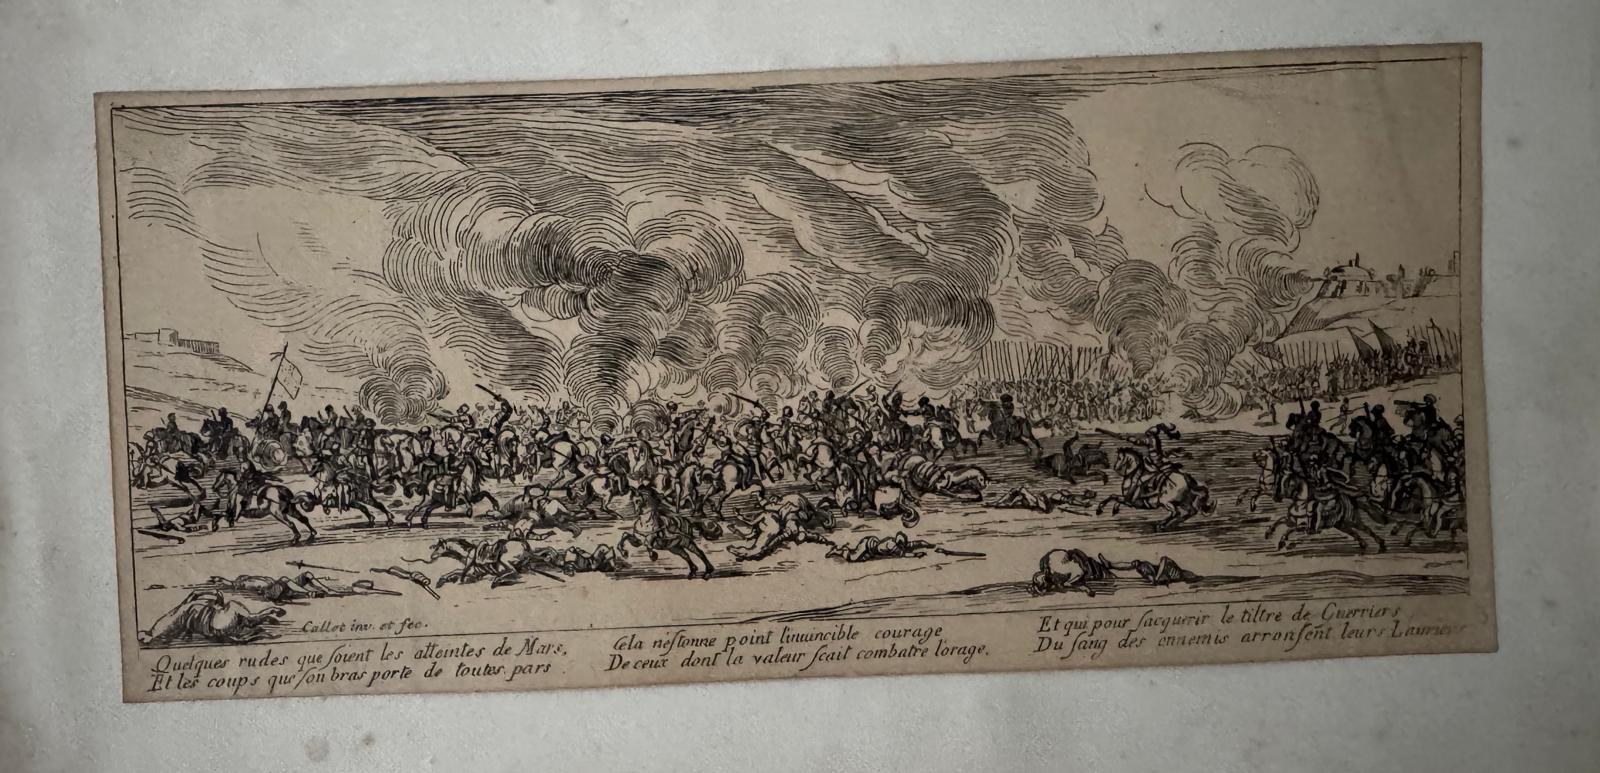 Callot inv. et fec.
Quelques rudes que ſoient les atteintes de Mars,
Et les coups que ſon bras porte de toutes pars
Cela n'eſtonne point l'inuincible courage
De ceux dont la valeur ſcait combatre l'orage.
Et qui pour ſacquerir le tiltre de Guerriers
Du ſang des ennemis arrouſent leurs Lauriers